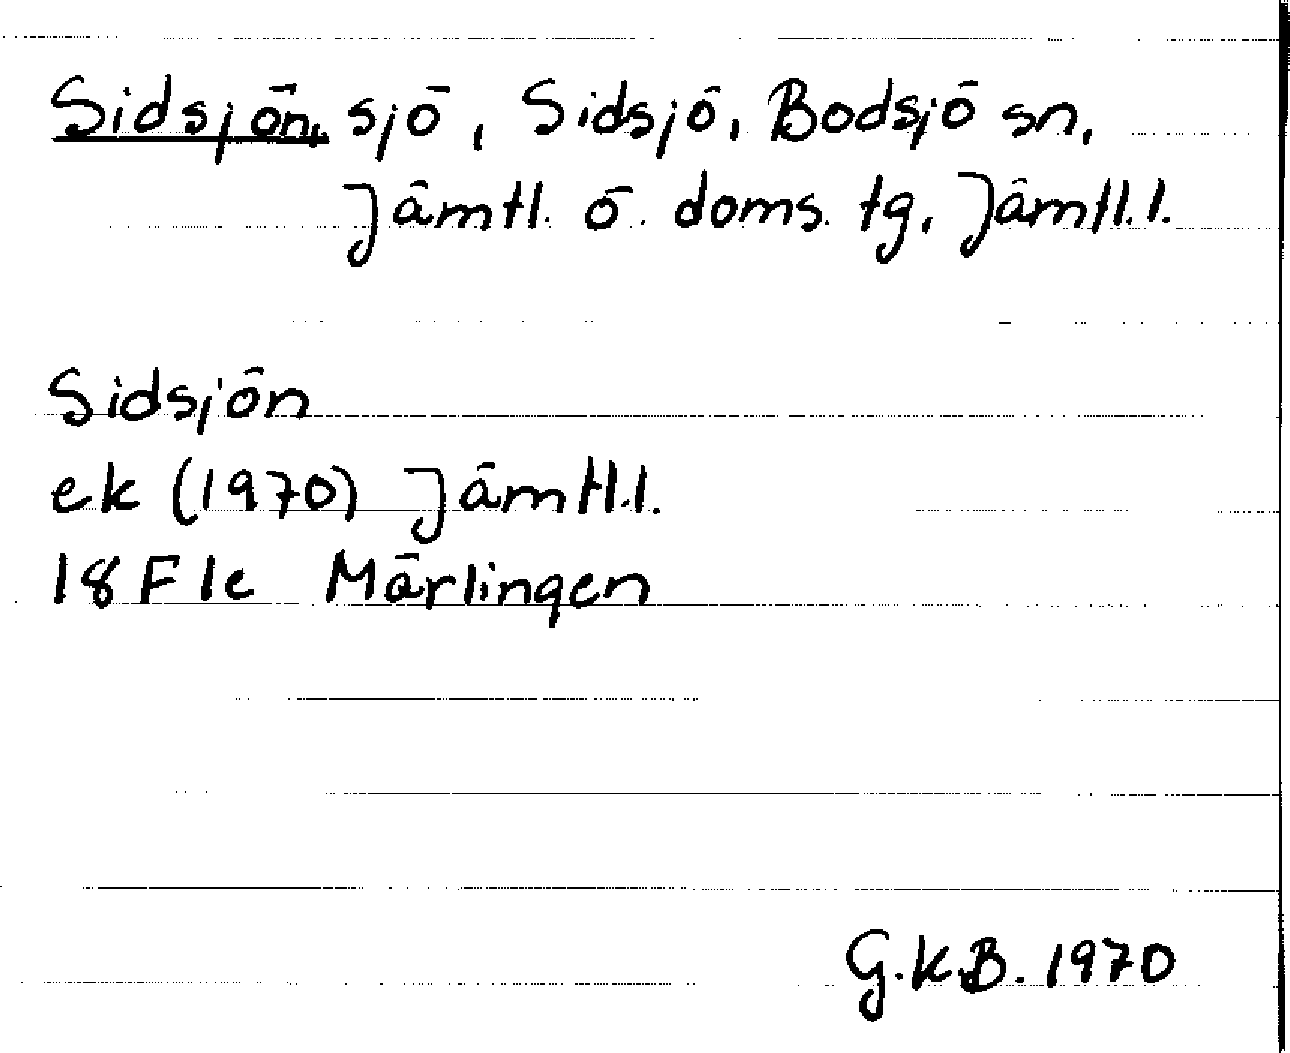 Sidsjön, sjö, Sidsjö, Bodsjö sn,
Jämtl. ö. doms. tg, Jämtl.l.
Sidsjön
ek (1970) Jämtl.l.
18F1c Märlingen
G.K.B. 1970